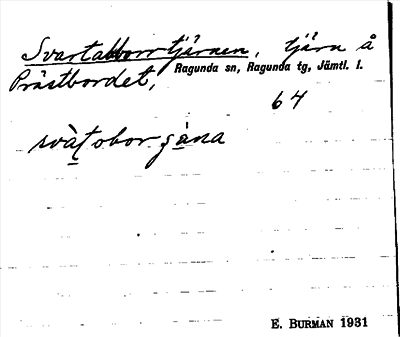 Svartabborrtjärnen, tjärn å
Prästbordet, Ragunda sn, Ragunda tg, Jämtl. l.
64
svàt̲obor şa̲na
E. BURMAN 1931